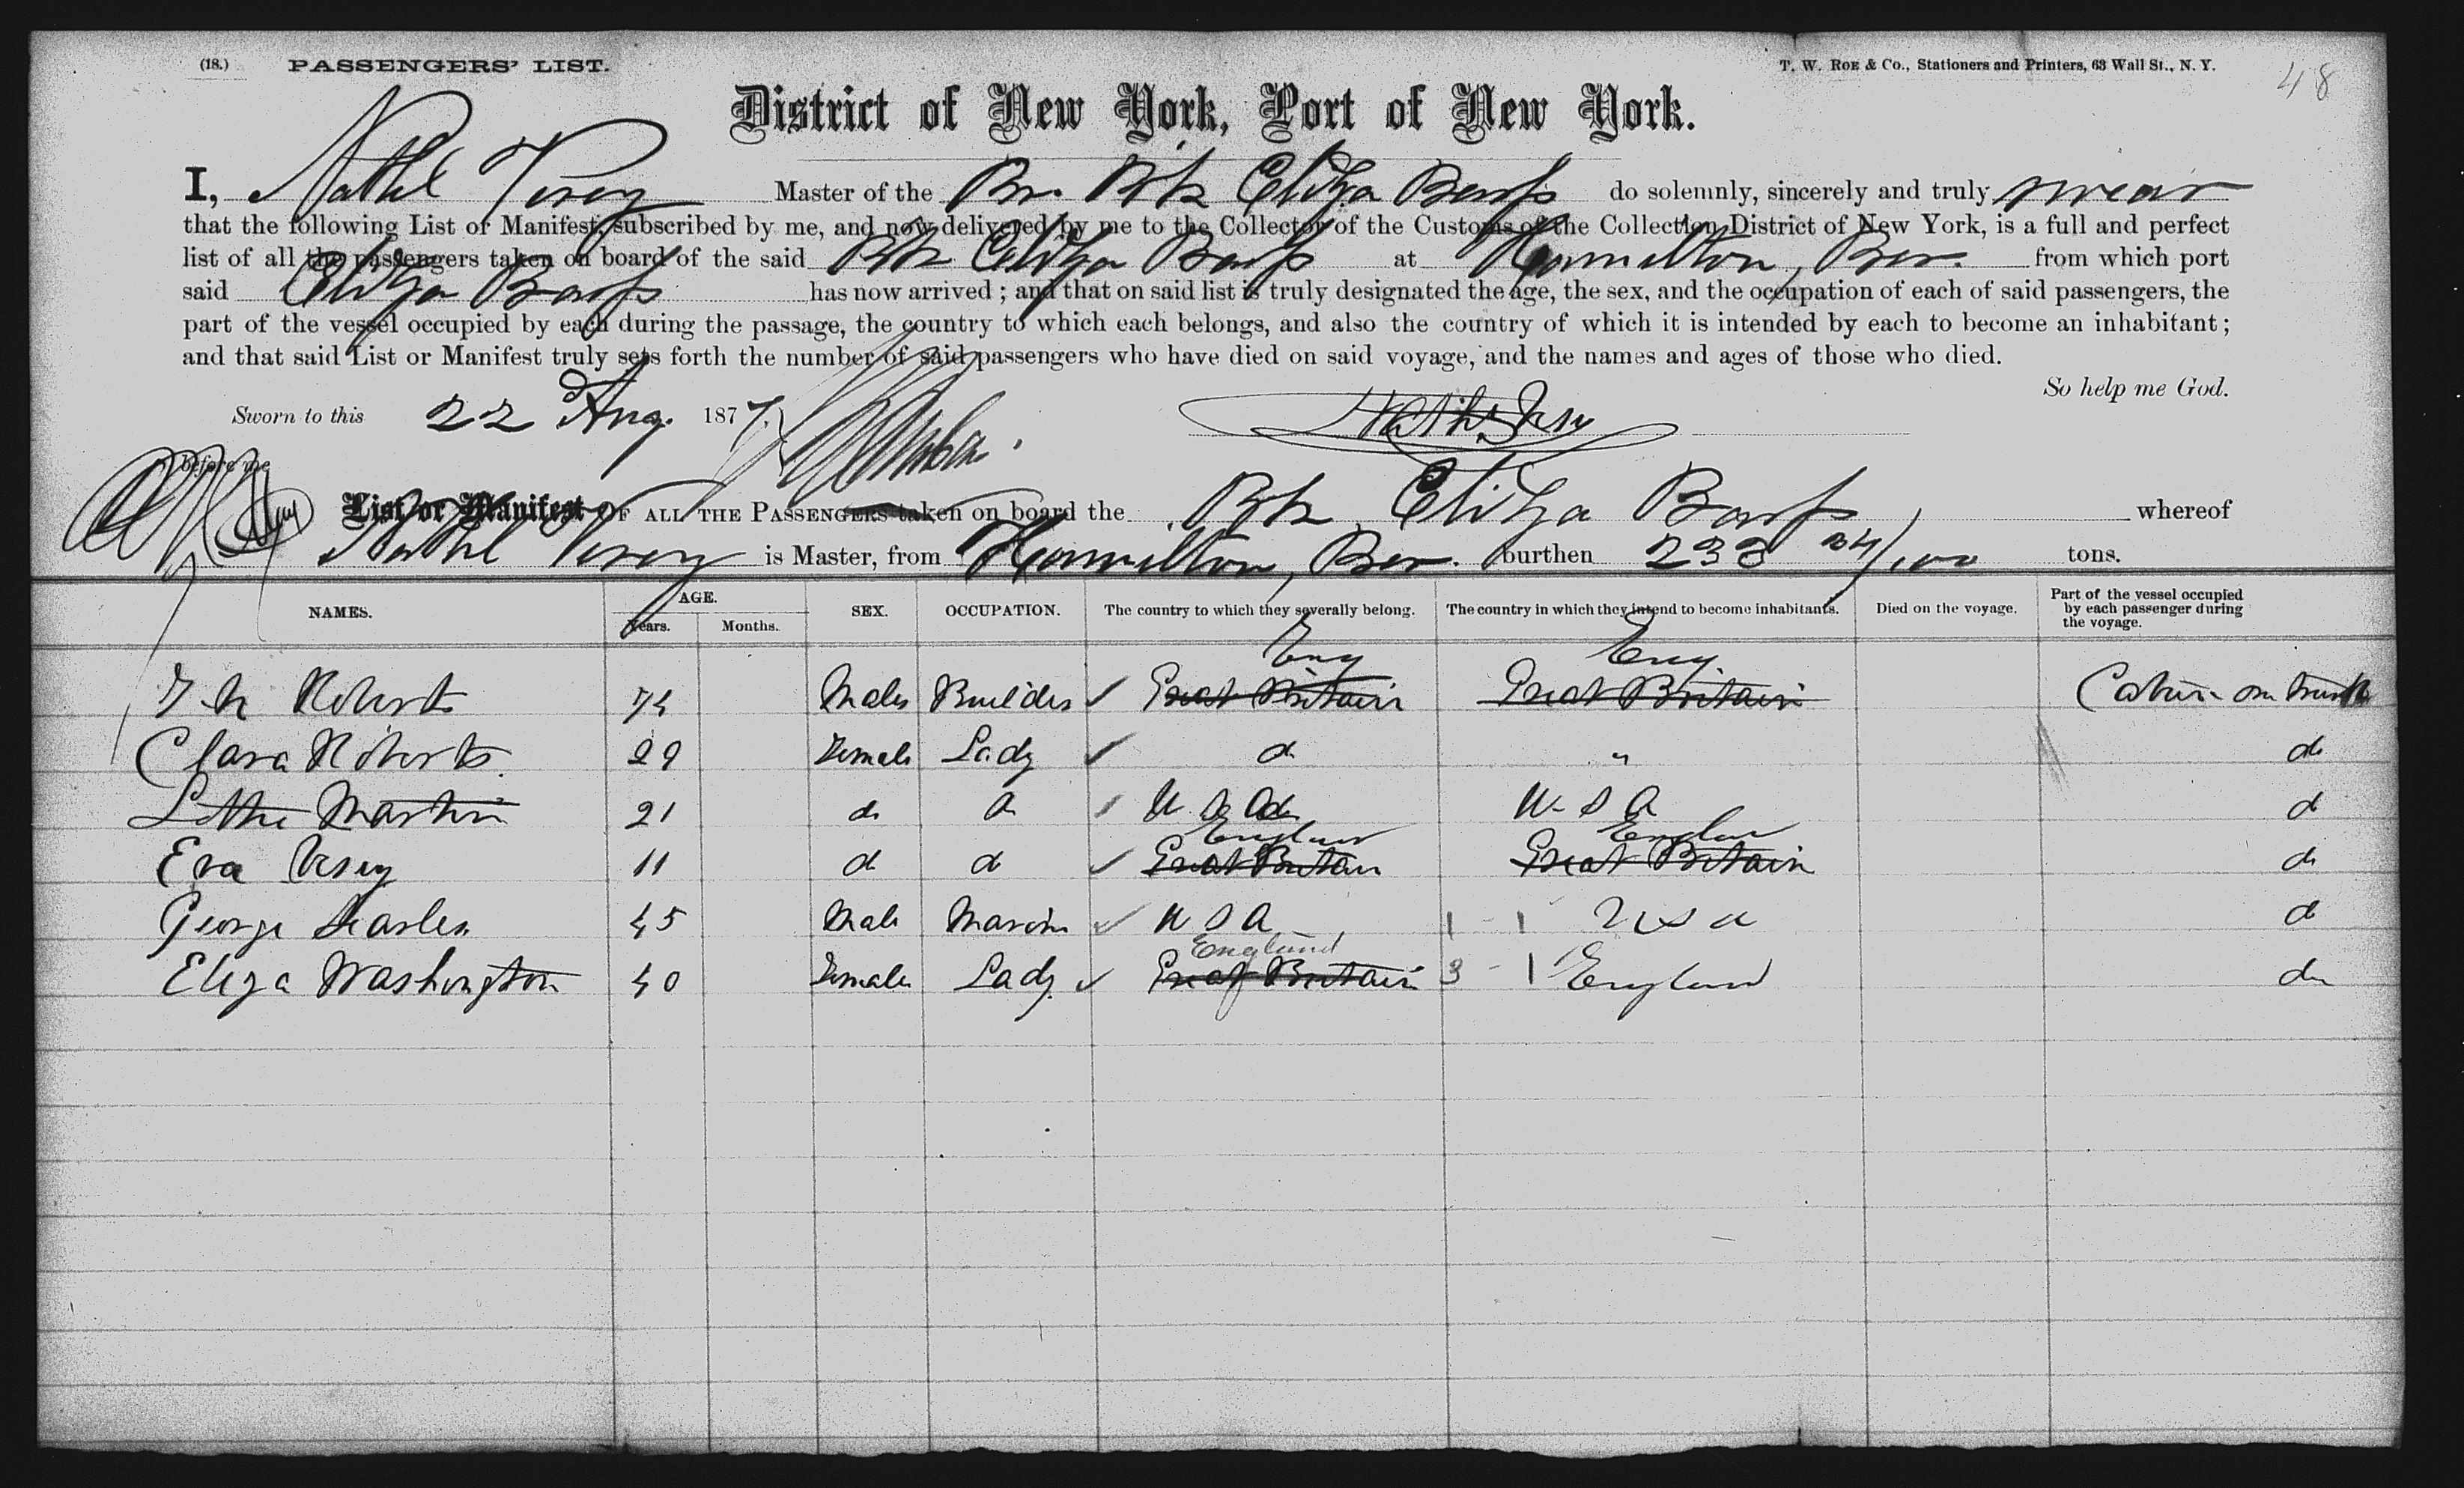 (18.) PASSENGERS' LIST. T. W. ROE & Co., Stationers and Printers, 63 Wall St., N. Y. 48
District of New York, Port of New York.
I, Nathl Vesey Master of the Br. Bk Eliza Barss do solemnly, sincerely and truly swear
that the following List or Manifest, subscribed by me, and now delivered by me to the Collector of the Customs of the Collection District of New York, is a full and perfect
list of all the passengers taken on board of the said Bk Eliza Barss at Hamilton, Ber. from which port
said Eliza Barss has now arrived; and that on said list is truly designated the age, the sex, and the occupation of each of said passengers, the
part of the vessel occupied by each during the passage, the country to which each belongs, and also the country of which it is intended by each to become an inhabitant;
and that said List or Manifest truly sets forth the number of said passengers who have died on said voyage, and the names and ages of those who died.
So help me God.
Sworn to this 22d Aug. 1877. Nathl Vesey
before me
List or Manifest OF ALL THE PASSENGERS taken on board the Bk Eliza Barss whereof
Nathl Vesey is Master, from Hamilton, Ber. burthen 233 34/100 tons.
NAMES. AGE. Years. Months. SEX. OCCUPATION. The country to which they severally belong. The country in which they intend to become inhabitants. Died on the voyage. Part of the vessel occupied by each passenger during the voyage.
Eng Eng.
Roberts 74 Male Builder Great Britain Great Britain Cabin
Clara Roberts 29 Female Lady do " do
Martin 21 do do U S A U. S A do
England England
Eva Vesey 11 do do Great Britain Great Britain do
George 45 Male U S A 1 - 1 U S A do
England
Eliza Washington 40 Female Lady Great Britain 3 - 1 England do